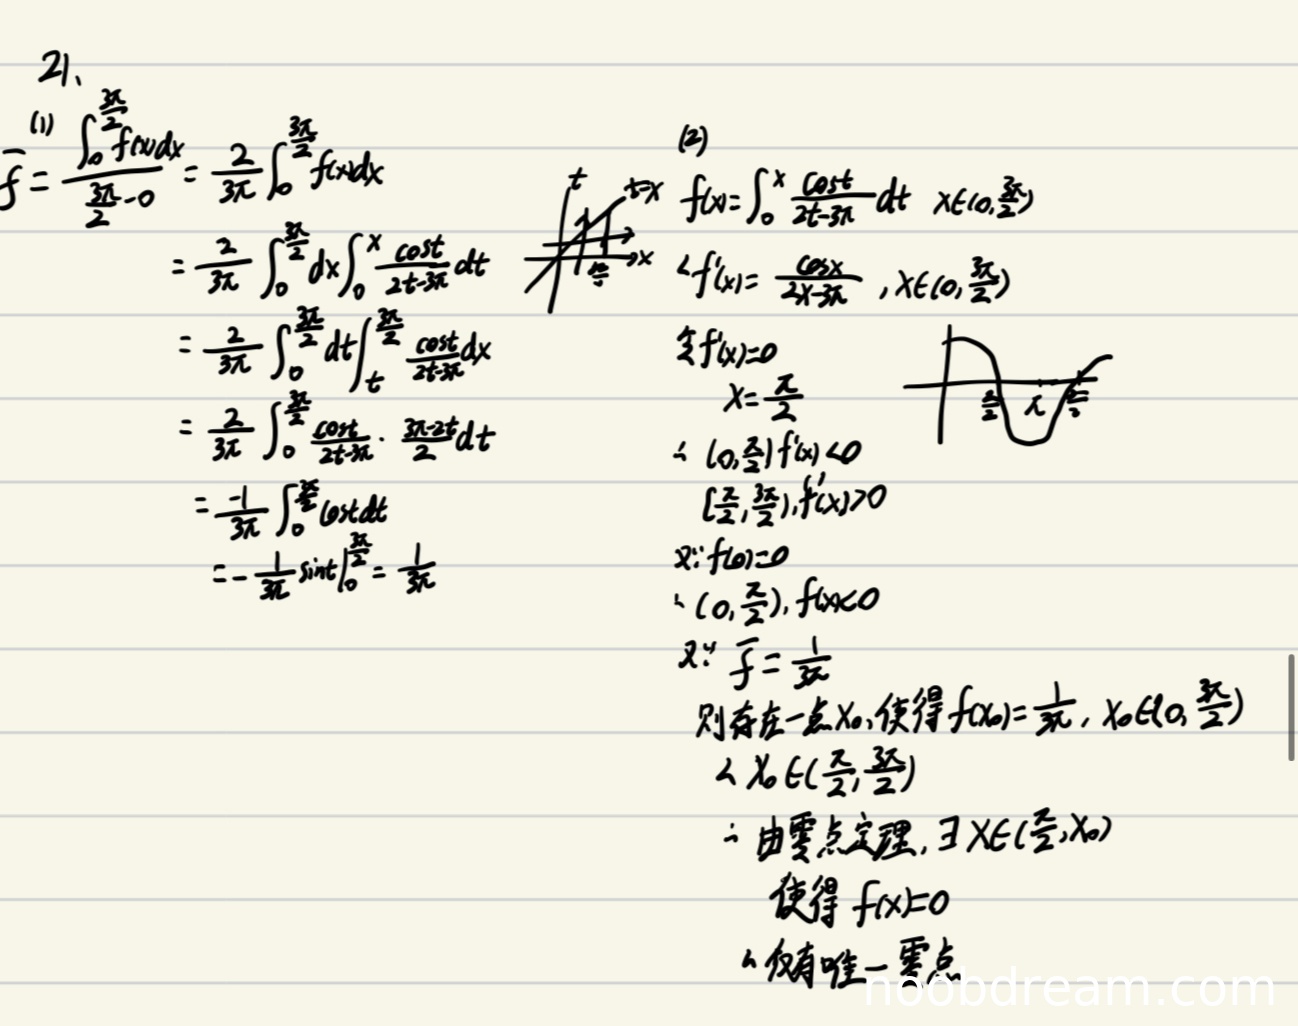 21、
(1)
f̄ = ∫₀^{3π/2} f(x)dx / (3π/2 - 0) = 2/3π ∫₀^{3π/2} f(x)dx
= 2/3π ∫₀^{3π/2} dx ∫₀^x cost/(2t-3π) dt
= 2/3π ∫₀^{3π/2} dt ∫_t^{3π/2} cost/(2t-3π) dx
= 2/3π ∫₀^{3π/2} cost/(2t-3π) · (3π-2t)/2 dt
= -1/3π ∫₀^{3π/2} cost dt
= - 1/3π sint |₀^{3π/2} = 1/3π
t
t=x
x
(2)
f(x) = ∫₀^x cost/(2t-3π) dt x∈(0, 3π/2)
∴ f'(x) = cosx/(2x-3π) , x∈(0, 3π/2)
令f'(x)=0
x = π/2
∴ (0, π/2) f'(x)<0
[π/2, 3π/2), f'(x)>0
又∵ f(0)=0
∴ (0, π/2), f(x)<0
又∵ f̄ = 1/3π
则存在一点x₀,使得f(x₀) = 1/3π, x₀∈(0, 3π/2)
∴ x₀∈(π/2, 3π/2)
∴ 由零点定理, ∃ x∈(π/2, x₀)
使得 f(x)=0
∴ 仅有唯一零点
π/2 π 3π/2
noobdream.com